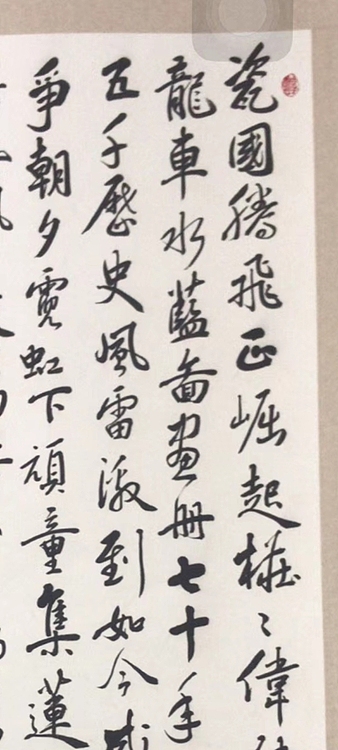 瓷國騰飛正崛起樁〻偉
龍車水藍圖畫冊七十年
五千歷史風雷激到如今
爭朝夕霓虹下頑童集蓮